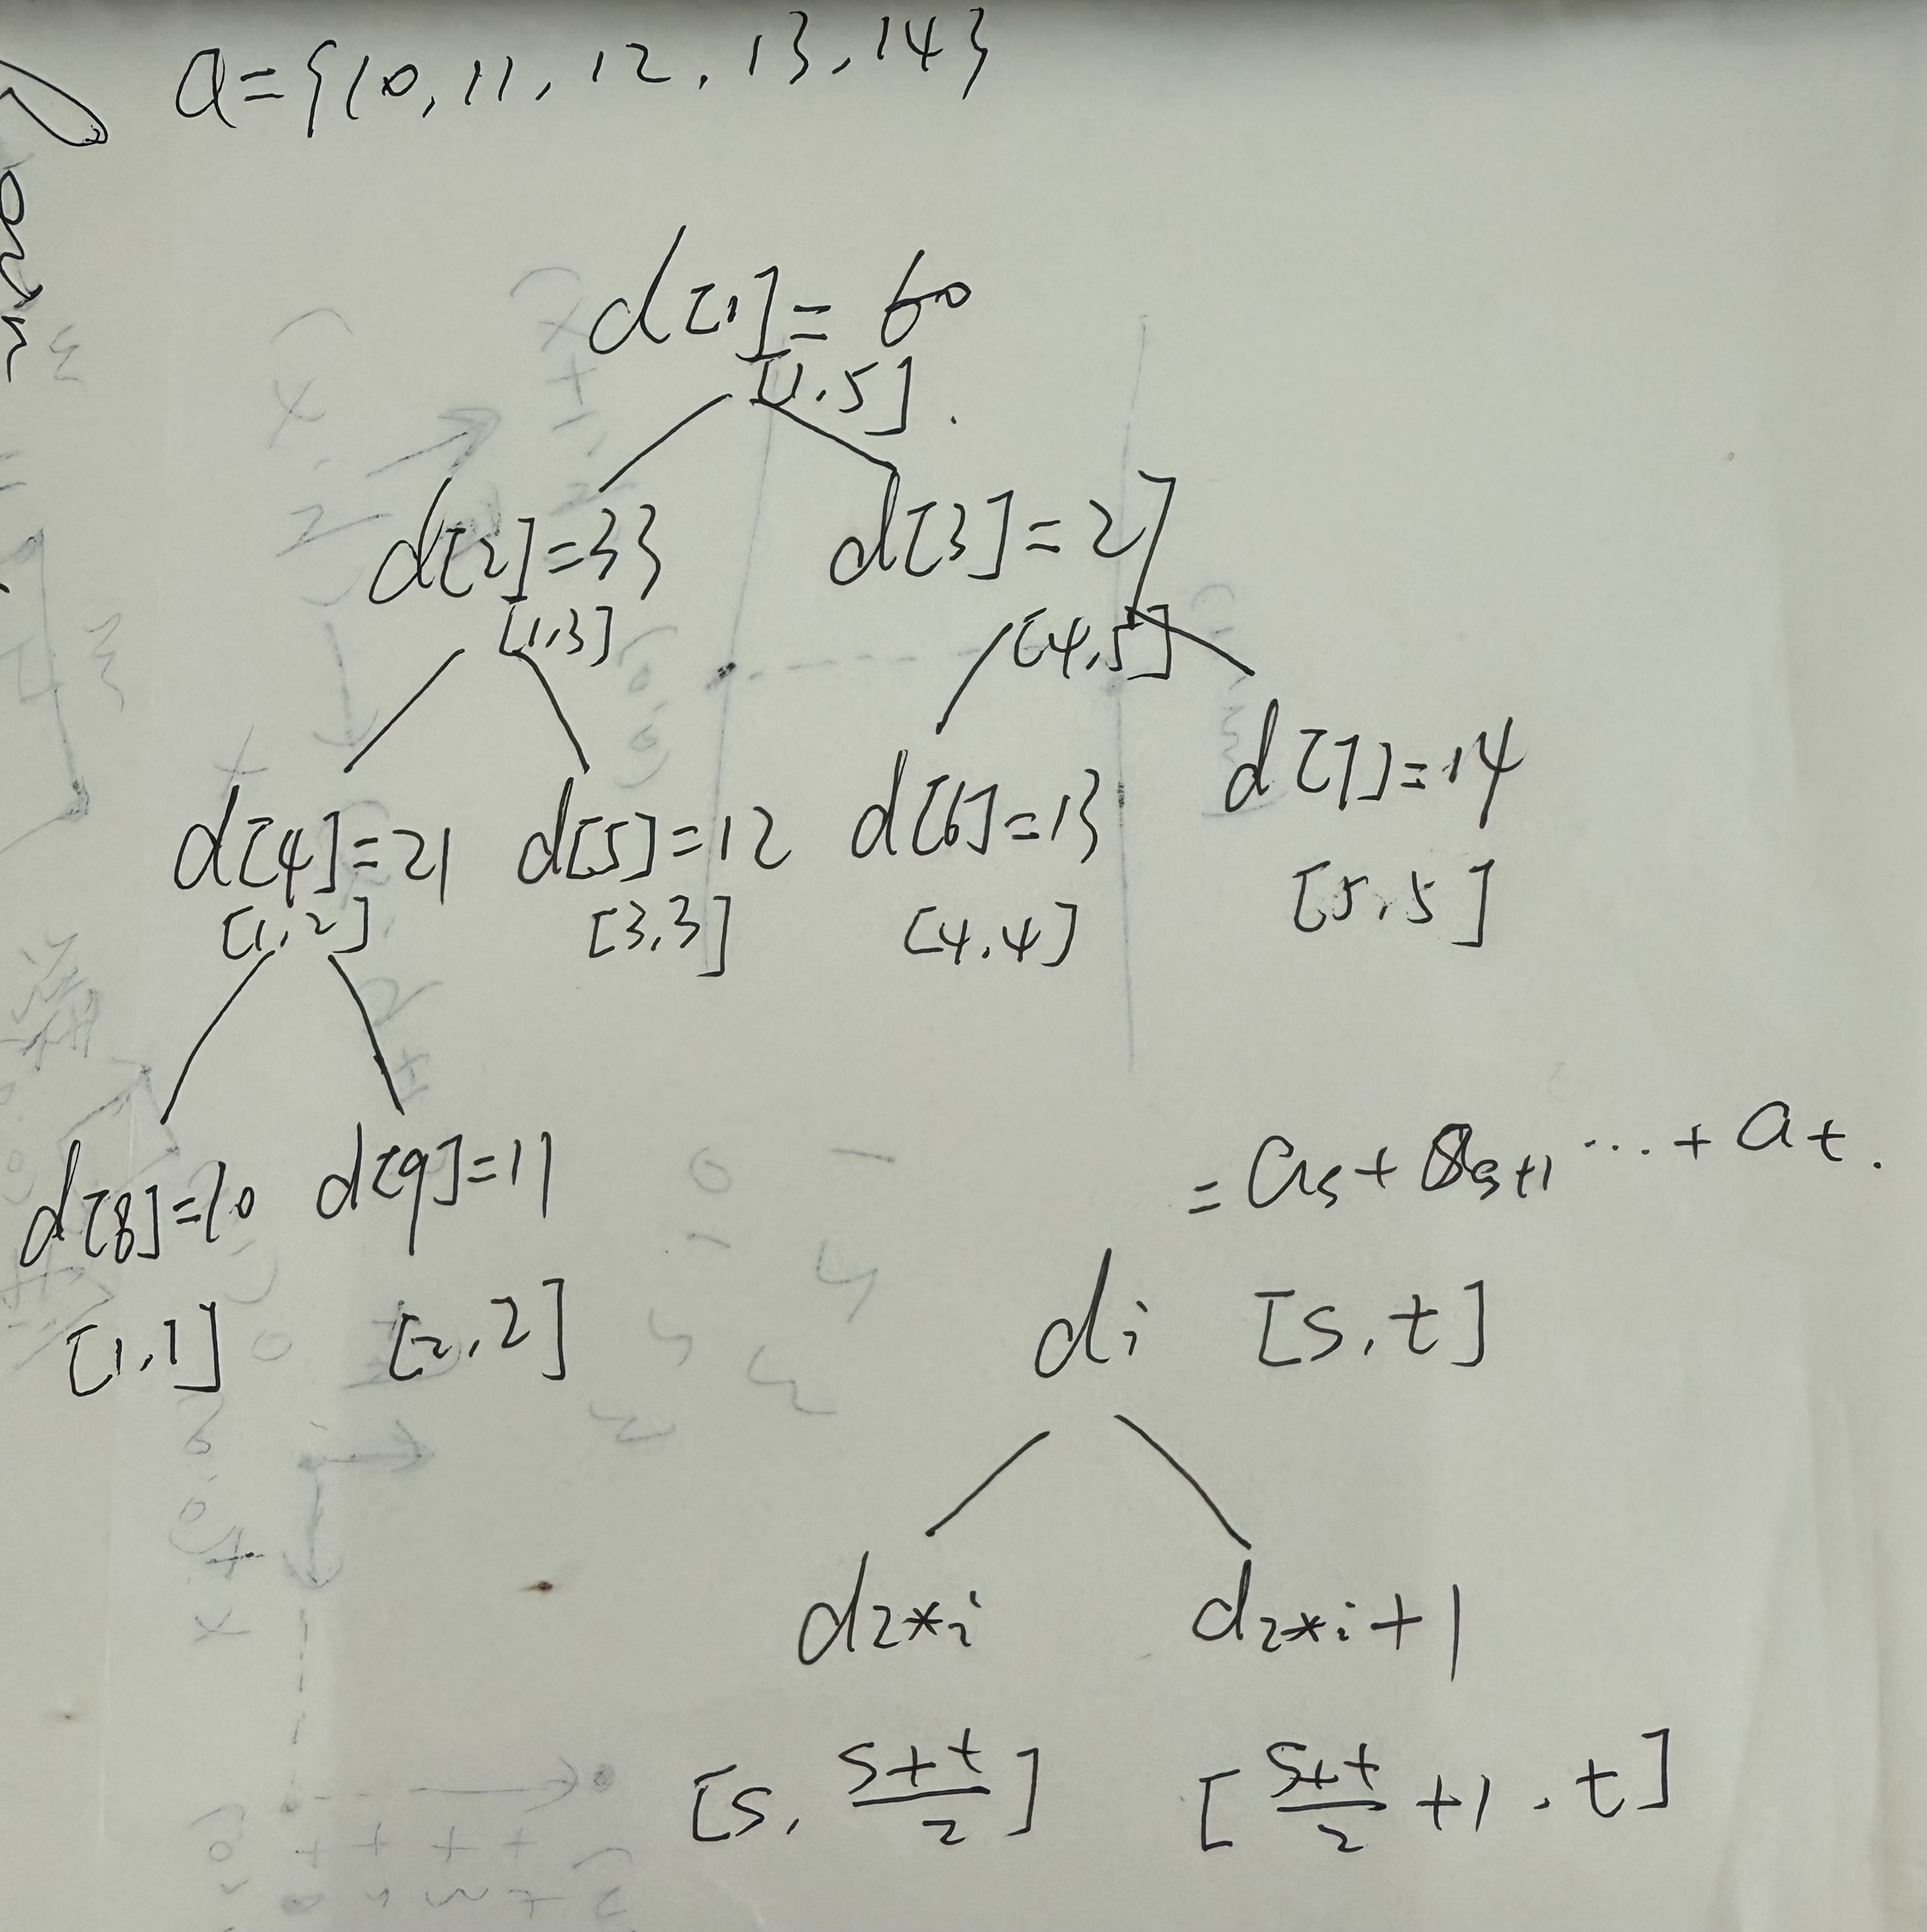 a={10,11,12,13,14}
d[1]=60
[1,5].
d[2]=33 d[3]=27
[1,3] [4,5]
d[4]=21 d[5]=12 d[6]=13 d[7]=14
[1,2] [3,3] [4,4] [5,5]
d[8]=10 d[9]=11
[1,1] [2,2]
=as+as+1...+at.
di [s,t]
d2*i d2*i+1
[s, s+t/2] [s+t/2+1,t]